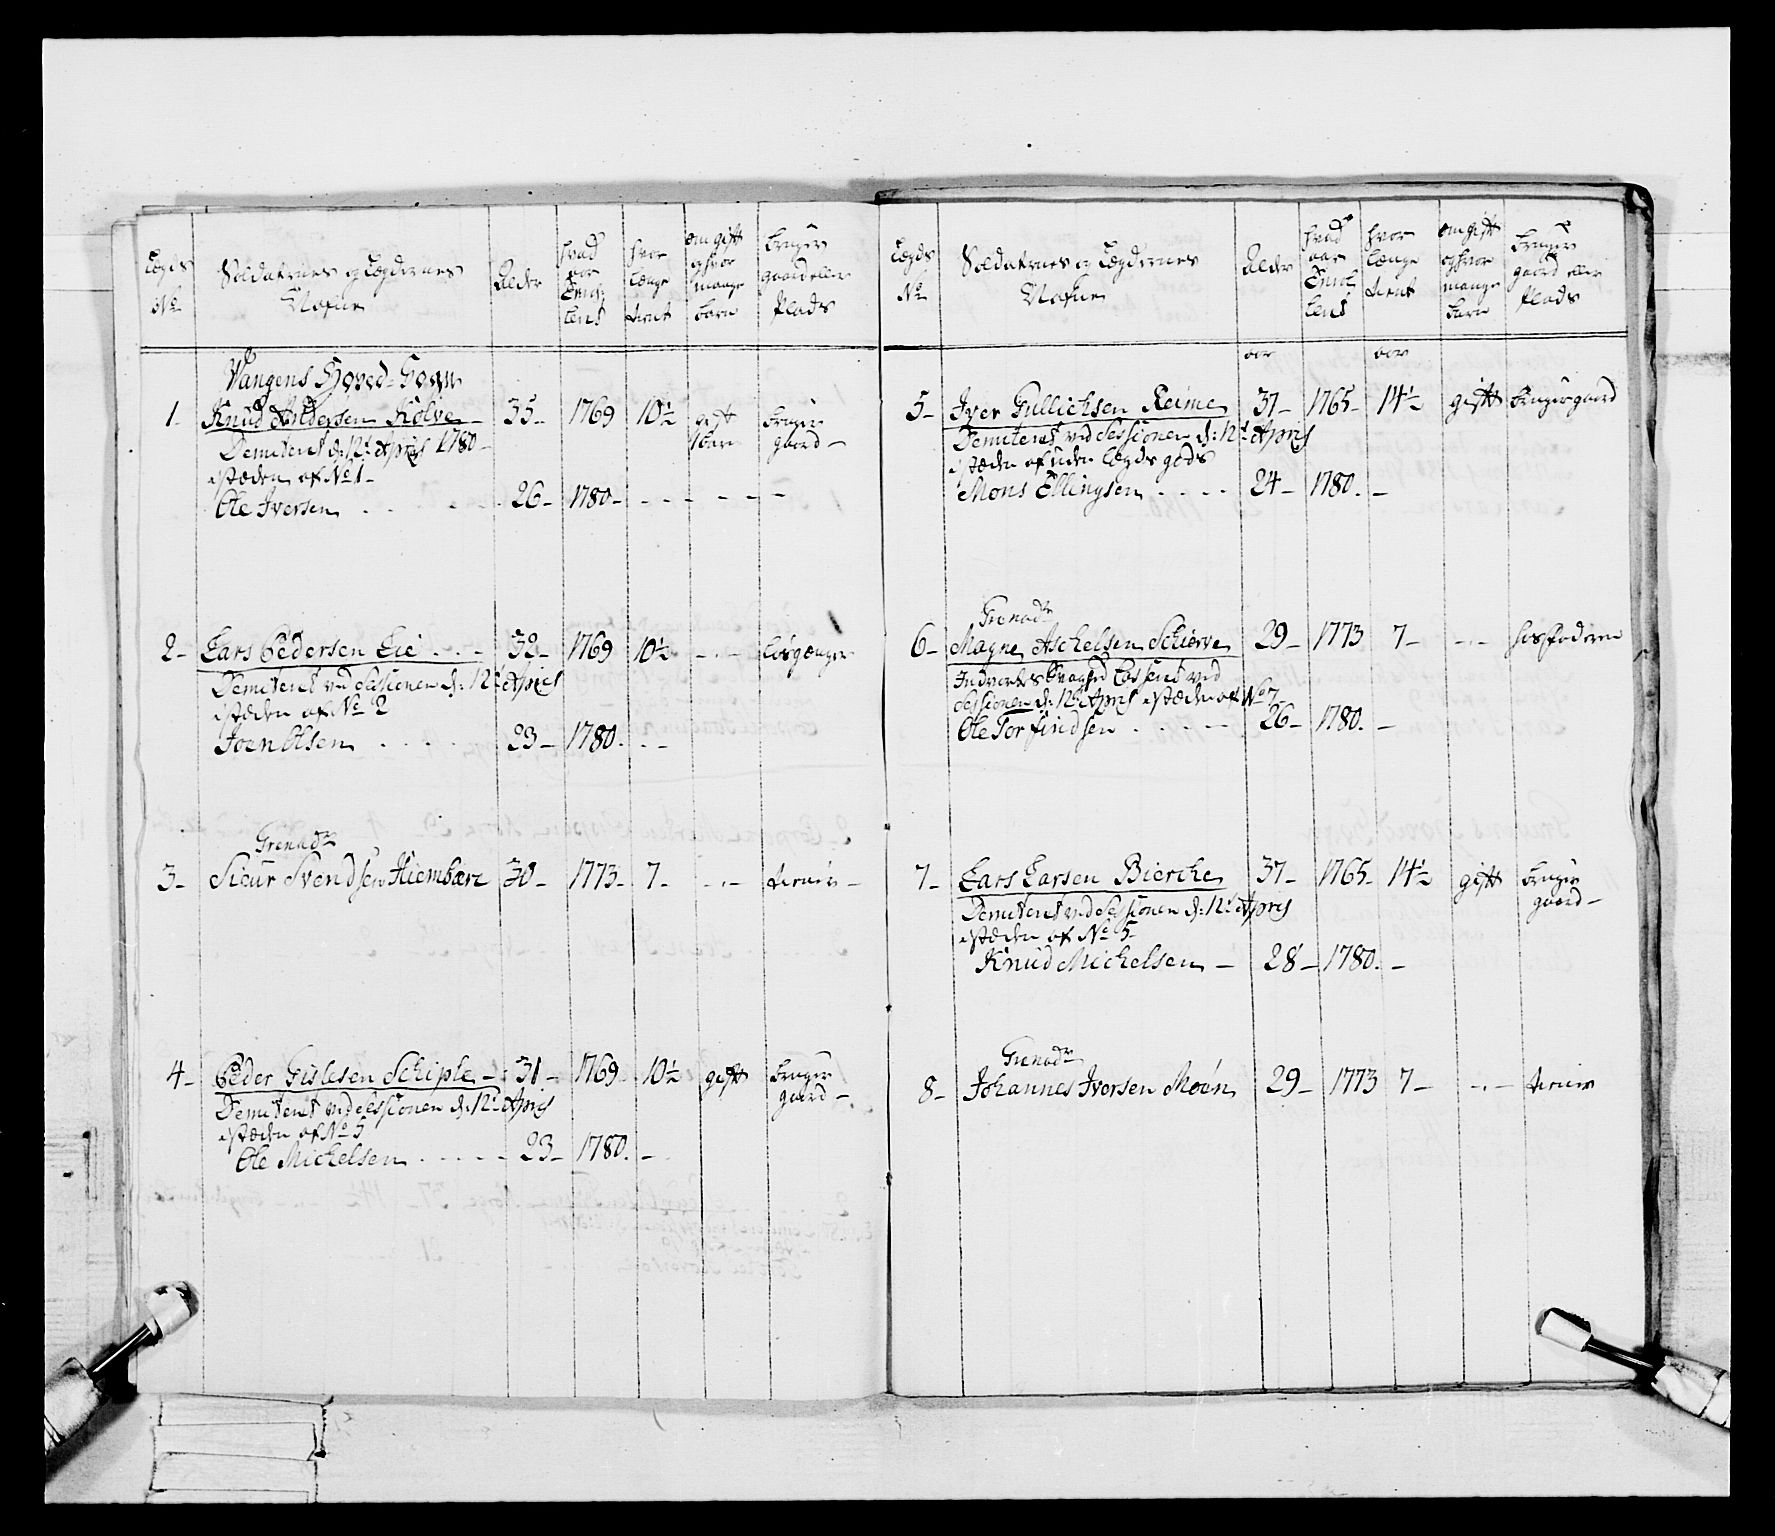 Lægds No
Soldaternes og Lægdernes Nafne
Alder
hvad aar Enrollerit
hvor længe tient
om gift og hvor mange børn
bruger gaard eller Plads
Vangens Hoved-Sogn
1 Knud Andersen Kølve 35 1769 10½ gift 1 barn bruger gaard
Demitteret d: 12t April 1780
i stæden af No 1
Ole Iversen 26 1780
2 Lars Pedersen Lie 32 1769 10½ løsgænger
Demiteret ved Sessionen d: 12t April
i stæden af No 2
Joen Olsen 23 1780
Grenadr
3 Siour Svendsen Hiembære 30 1773 7 tiener
4 Peder Gislesen Schiple 31 1769 10½ gift bruger gaard
Demiteret ved Sessionen d: 12t April
i stæden af No 5
Ole Michelsen 23 1780
Lægds No
Soldaternes og Lægdernes Nafne
Alder
hvad aar Enrollerit
hvor længe tient
om gift og hvor mange børn
bruger gaard eller Plads
aar aar
5 Iver Gullichsen Reime 37 1765 14½ gift bruger gaard
Demiteret ved Sessionen d: 12t April
i stæden af uden Lægds gods
Mons Ellingsen 24 1780
Grenadr
6 Magne Aschelsen Schierve 29 1773 7 hos faderen
Indvortes Svaghed Casserit ved
Sessionen d: 12t April i stæden af No 7
Ole Torfindsen 26 1780
7 Lars Larsen Bierche 37 1765 14½ gift bruger gaard
Demiteret ved Sessionen d: 12t April
i stæden af No 5
Knud Michelsen 28 1780
Grenadr
8 Johannes Iversen Moen 29 1773 7 tiener